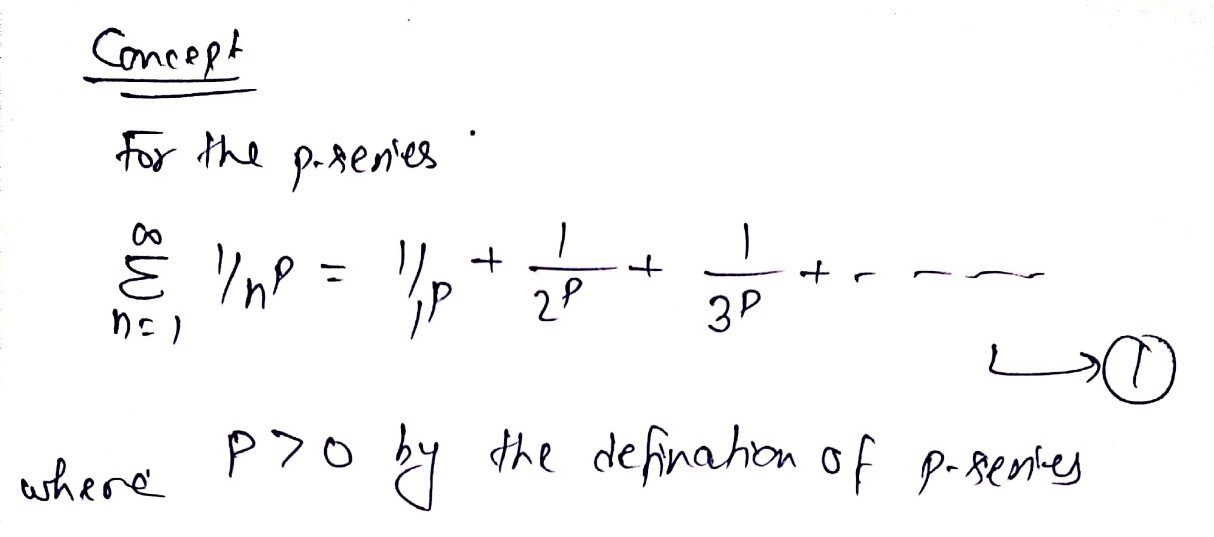 Concept
For the p-series
∞
Σ 1/nᵖ = 1/1ᵖ + 1/2ᵖ + 1/3ᵖ + - - -
n=1
→ ①
where P > 0 by the defination of p-series